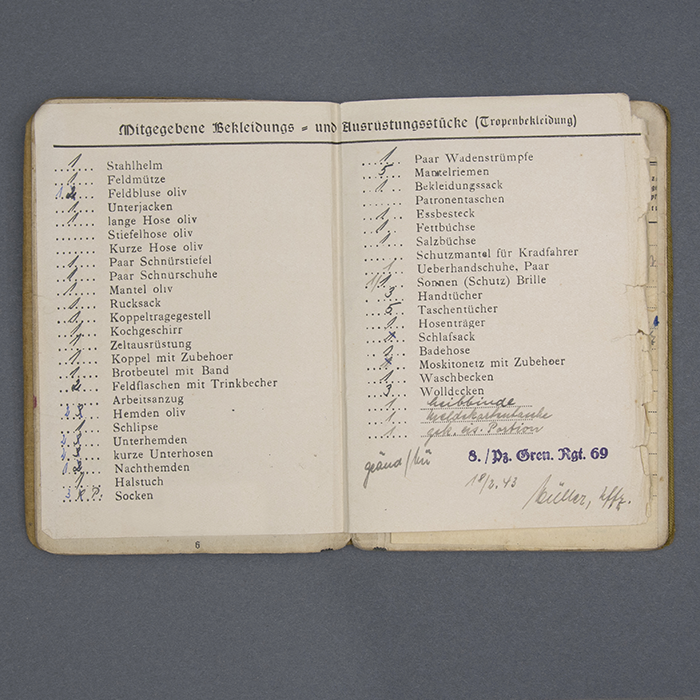 Mitgegebene Bekleidungs = und Ausrüstungsstücke (Tropenbekleidung)
1 Stahlhelm
1 Feldmütze
Feldbluse oliv
1 Unterjacken
1 lange Hose oliv
Stiefelhose oliv
Kurze Hose oliv
1 Paar Schnürstiefel
1 Paar Schnurschuhe
1 Mantel oliv
1 Rucksack
1 Koppeltragegestell
1 Kochgeschirr
1 Zeltausrüstung
1 Koppel mit Zubehoer
1 Brotbeutel mit Band
2 Feldflaschen mit Trinkbecher
Arbeitsanzug
Hemden oliv
1 Schlipse
Unterhemden
kurze Unterhosen
Nachthemden
1 Halstuch
Socken
6
1 Paar Wadenstrümpfe
5 Mantelriemen
1 Bekleidungssack
Patronentaschen
1 Essbesteck
1 Fettbüchse
1 Salzbüchse
Schutzmantel für Kradfahrer
1 Ueberhandschuhe, Paar
Sonnen (Schutz) Brille
3 Handtücher
5 Taschentücher
1 Hosenträger
Schlafsack
Badehose
Moskitonetz mit Zubehoer
1 Waschbecken
3 Wolldecken
1 Leibbinde
1
1 Portion
8./Pz. Gren. Rgt. 69
Müller,